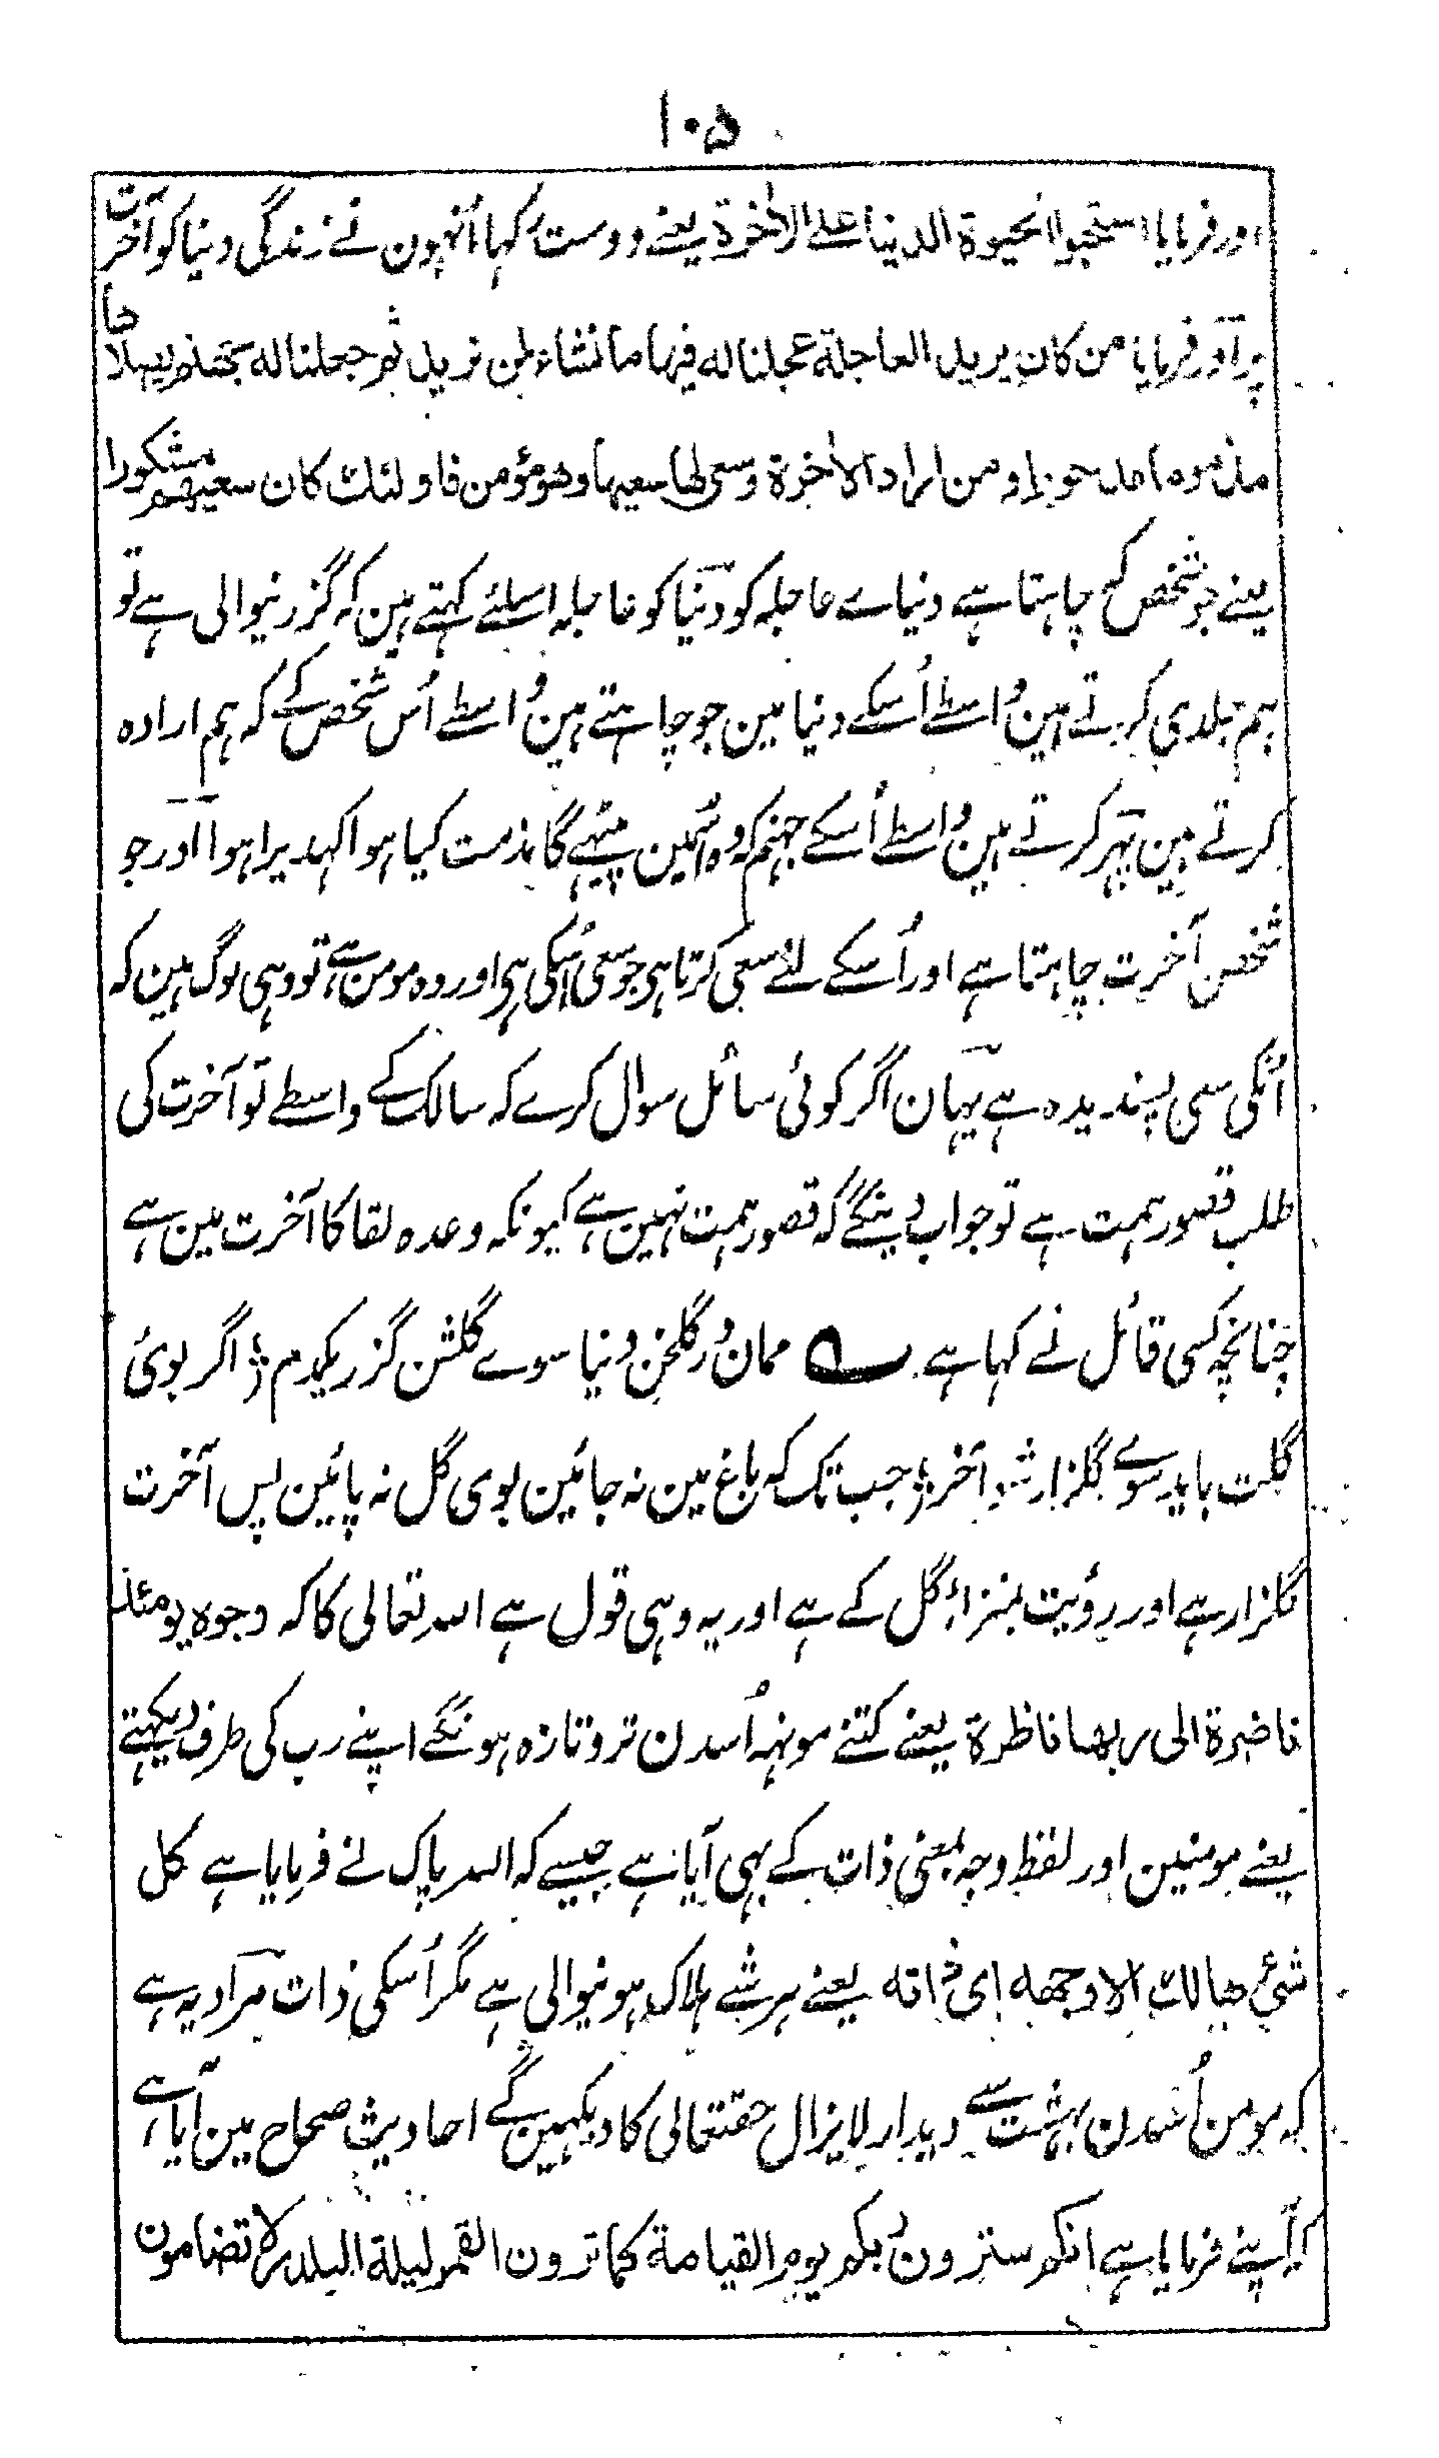 ۱۰۵
اور فرمایا استحبوا الحیوة الدنیا علی الاخرة یعنے دوست رکہا اُنہون نے زندگی دنیا کو آخرت
پر اور فرمایا من کان یرید العاجلة عجلنا له فیها ما نشاء لمن نرید ثم جعلنا له جهنم یصلاها
مذموما مدحورا و من اراد الاخرة وسعی لها سعیها وهو مؤمن فاولئك کان سعیهم مشکورا
یعنے جو شخص کہ چاہتا ہے دنیاے عاجلہ کو دنیا کو عاجلہ اسلئے کہتے ہین کہ گزرنیوالی ہے تو
ہم جلدی کرتے ہین واسطے اُسکے دنیا مین جو چاہتے ہین واسطے اُس شخص کے کہ ہم ارادہ
کرتے ہین پہر کرتے ہین واسطے اُسکے جہنم کہ وہ اُسمین پیٹہے گا مذمت کیا ہوا کہدیرا ہوا اور جو
شخص آخرت چاہتا ہے اور اُسکے لئے سعی کرتا ہی جو سعی اُسکی ہی اور وہ مومن ہے تو وہی لوگ ہین کہ
اُنکی سعی پسندیدہ ہے یہان اگر کوئی سائل سوال کرے کہ سالک کے واسطے تو آخرت کی
طلب قصور ہمت ہے تو جواب دینگے کہ قصور ہمت نہین ہے کیونکہ وعدہ لقا کا آخرت مین ہے
چنانچہ کسی قائل نے کہا ہے ؎ ممان در گلخن دنیا سوے گلشن گزر یکدم ؛ اگر بوئ
گلت باید سوے گلزار شد آخر ؛ جب تک کہ باغ مین نہ جائین بوی گل نہ پائین پس آخرت
گلزار ہے اور رؤیت بمنزلہ گل کے ہے اور یہ وہی قول ہے اللہ تعالی کا کہ وجوه یومئذ
ناضرة الی ربها ناظرة یعنے کتنے مونہہ اُسدن تر و تازہ ہونگے اپنے رب کی طرف دیکہتے
یعنے مومنین اور لفظ وجہ بمعنی ذات کے بہی آیا ہے جیسے کہ اللہ پاک نے فرمایا ہے کل
شئ هالك الا وجهه ای ذاته یعنے ہر شے ہلاک ہونیوالی ہے مگر اُسکی ذات مراد یہ ہے
کہ مومن اُسدن بہشت سے دیدار لایزال حقتعالی کا دیکہین گے احادیث صحاح مین آیا ہے
کہ آپنے فرمایا ہے انکم سترون ربکم یوم القیامة کما ترون القمر لیلة البدر لا تضامون